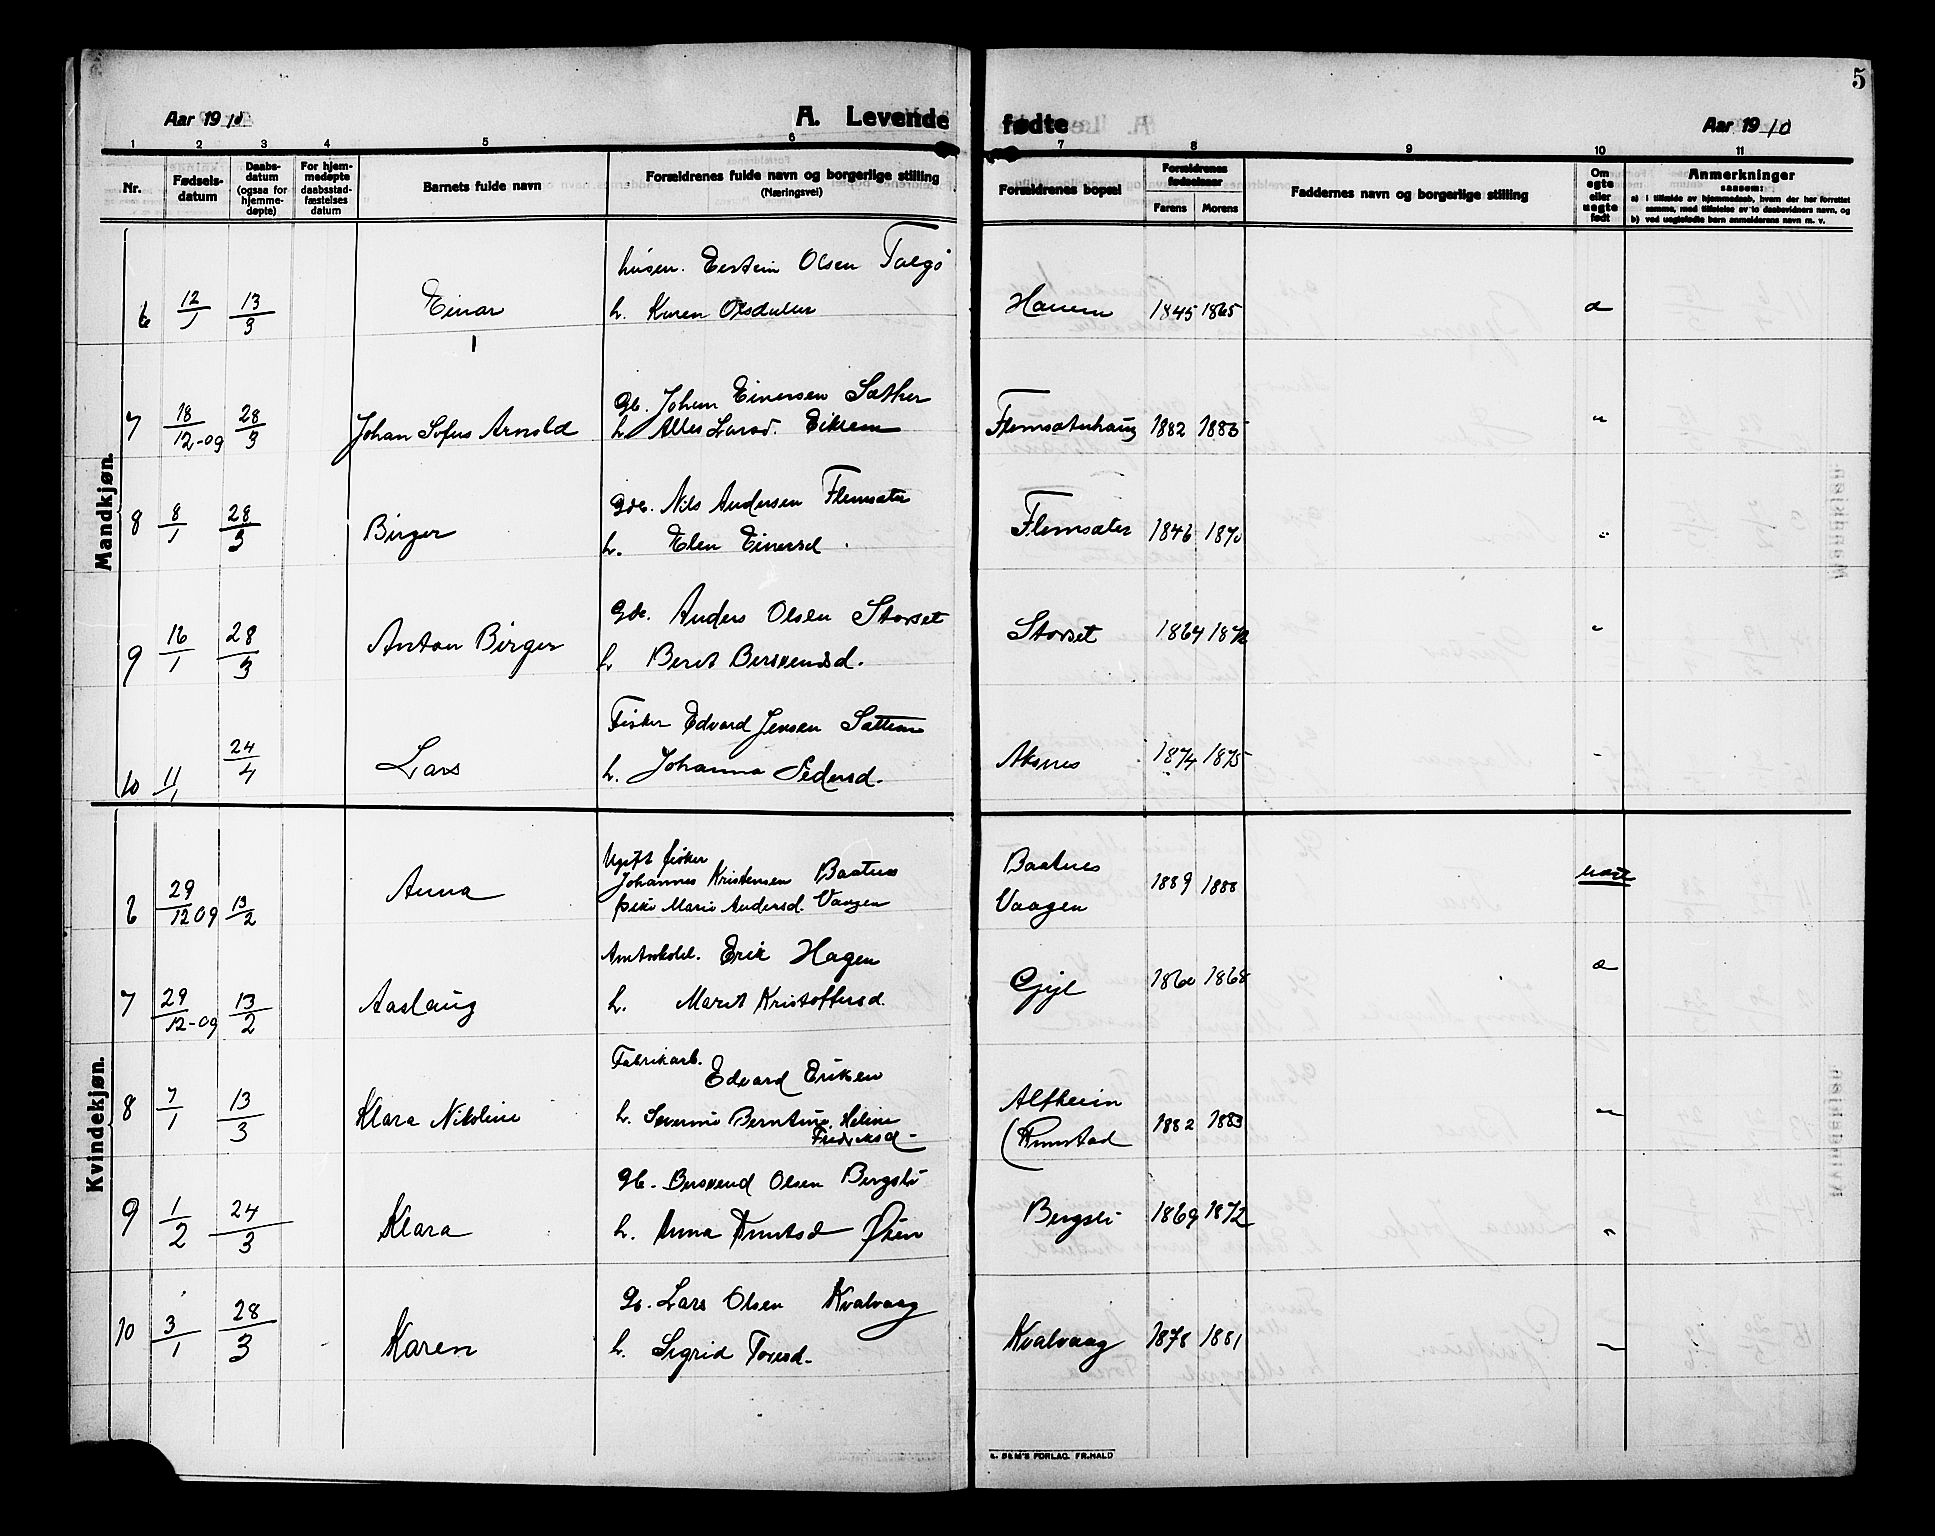 5
Aar 1910 A. Levende fødte Aar 1910
1 2 3 4 5 6 7 8 9 10 11
Nr. Fødselsdatum Daabsdatum (ogsaa for hjemmedøpte) For hjemmedøpte daabsstadfæstelses datum Barnets fulde navn Forældrenes fulde navn og borgerlige stilling (Næringsvei) Forældrenes bopæl Forældrenes fødselsaar Farens Morens Faddernes navn og borgerlige stilling Om egte eller uegte født Anmerkninger saasom:
a) i tilfælde av hjemmedaab, hvem der har forrettet samme, med tilføielse av to daabsvidners navn, og
b) ved uegtefødte barn anmelderens navn m. v.
Mandkjøn.
husm. Eistein Olsen Talgø
6 12/1 13/3 Einar h. Karen Olsdatter 1845 1865
1
Gb. Johan Einersen Sæther
7 18/12-09 28/3 Johan Sofus Arnold h. Larsd. Eikrem Flemsæterhaug 1882 1885 "
Gde. Nils Andersen Flemsæter
8 8/1 28/3 Birger h. Elen Einersd. Flemsæter 1846 1870 "
Gde. Anders Olsen Storset
9 16/1 28/3 Anton Birger h. Berit Bersvendsd. Storset 1864 1872 "
Fisker Edvard Jensen Sættem
10 11/1 24/4 Lars h. Johanna Pedersd. Aksnes 1874 1875 -
Kvindekjøn.
Ugift fisker
Johannes Kristensen Baatnes Baatnes
6 29/12 09 13/2 Anna pike Marie Andersd. Vaagen Vaagen 1889 1888
Erik Hagen
7 29/12-09 13/2 Aaslaug h. Marit Kristoffersd. Gjøl 1860 1868
Fabrikarb.
Edvard Eriksen Alfheim
8 7/1 13/3 Klara Nikoline h. Severine Berntine Heline Fredriksd - (Knutstad 1882 1883 "
Gb. Bersvend Olsen Bergsli
9 1/2 24/3 Klara h. Anna Knutsd Øien Bergsli 1869 1872 "
Gb. Lars Olsen Kvalvaag
10 3/1 28/3 Karen h. Sigrid Toresd. Kvalvaag 1878 1881 -
S. & M'S FORLAG. FR. HALD